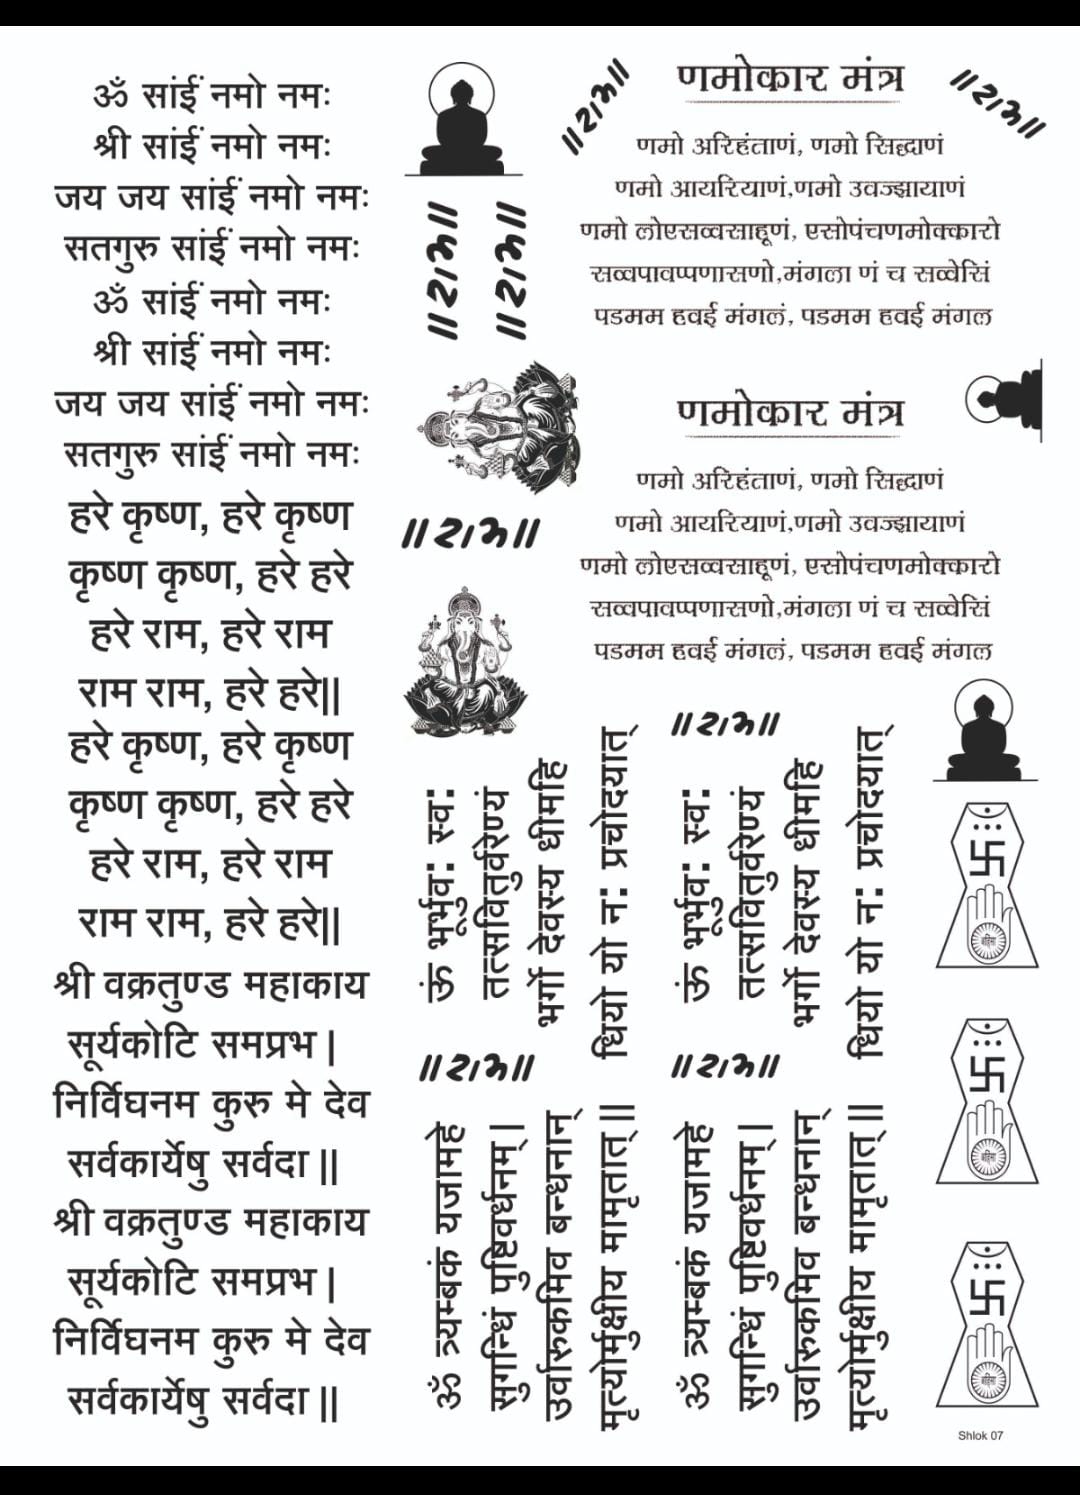 ॐ सांईं नमो नमः
श्री सांईं नमो नमः
जय जय सांईं नमो नमः
सतगुरु सांईं नमो नमः
ॐ सांईं नमो नमः
श्री सांईं नमो नमः
जय जय सांईं नमो नमः
सतगुरु सांईं नमो नमः
हरे कृष्ण, हरे कृष्ण
कृष्ण कृष्ण, हरे हरे
हरे राम, हरे राम
राम राम, हरे हरे||
हरे कृष्ण, हरे कृष्ण
कृष्ण कृष्ण, हरे हरे
हरे राम, हरे राम
राम राम, हरे हरे||
श्री वक्रतुण्ड महाकाय
सूर्यकोटि समप्रभ |
निर्विघनम कुरु मे देव
सर्वकार्येषु सर्वदा ||
श्री वक्रतुण्ड महाकाय
सूर्यकोटि समप्रभ |
निर्विघनम कुरु मे देव
सर्वकार्येषु सर्वदा ||
॥राम॥
॥राम॥
॥राम॥
॥राम॥
णमोकार मंत्र
॥राम॥
णमो अरिहंताणं, णमो सिद्धाणं
णमो आयरियाणं,णमो उवज्झायाणं
णमो लोएसव्वसाहूणं, एसोपंचणमोक्कारो
सव्वपावप्पणासणो,मंगला णं च सव्वेसिं
पडमम हवई मंगलं, पडमम हवई मंगल
णमोकार मंत्र
णमो अरिहंताणं, णमो सिद्धाणं
णमो आयरियाणं,णमो उवज्झायाणं
णमो लोएसव्वसाहूणं, एसोपंचणमोक्कारो
सव्वपावप्पणासणो,मंगला णं च सव्वेसिं
पडमम हवई मंगलं, पडमम हवई मंगल
ऊं भूर्भुव: स्व:
तत्सवितुर्वरेण्यं
भर्गो देवस्य धीमहि
धियो यो न: प्रचोदयात्
॥राम॥
ऊं भूर्भुव: स्व:
तत्सवितुर्वरेण्यं
भर्गो देवस्य धीमहि
धियो यो न: प्रचोदयात्
॥राम॥
ॐ त्र्यम्बकं यजामहे
सुगन्धिं पुष्टिवर्धनम् |
उर्वारुकमिव बन्धनान्
मृत्योर्मुक्षीय मामृतात् ||
॥राम॥
ॐ त्र्यम्बकं यजामहे
सुगन्धिं पुष्टिवर्धनम् |
उर्वारुकमिव बन्धनान्
मृत्योर्मुक्षीय मामृतात् ||
अहिंसा
अहिंसा
अहिंसा
Shlok 07